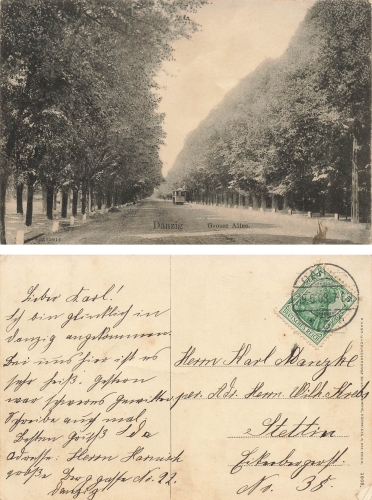 Danzig Grosse Allee.
Lieber Karl!
Ich bin glücklich in
Danzig angekommen.
Bei uns hier ist es
sehr heiß. Gestern
war schweres Gewitter.
Schreibe auch mal.
Besten Gruß Ida
Adresse: Herrn
große Berggasse No. 22
Danzig
Herrn Karl
per. Adr. Herrn Wilh. Krebs
Stettin
No. 35.